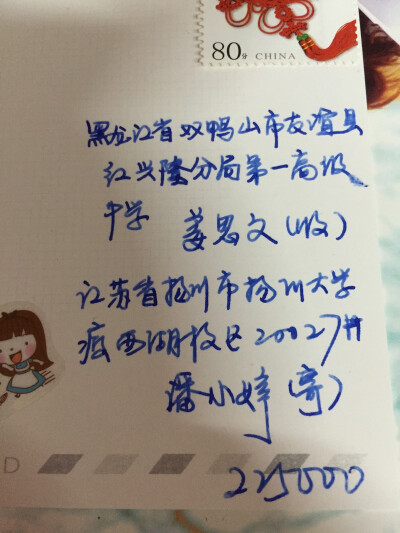 80分 CHINA
黑龙江省双鸭山市友谊县
红兴隆分局第一高级
中学 姜思文(收)
江苏省扬州市扬州大学
瘦西湖校区2002
潘小婷(寄)
225000
D